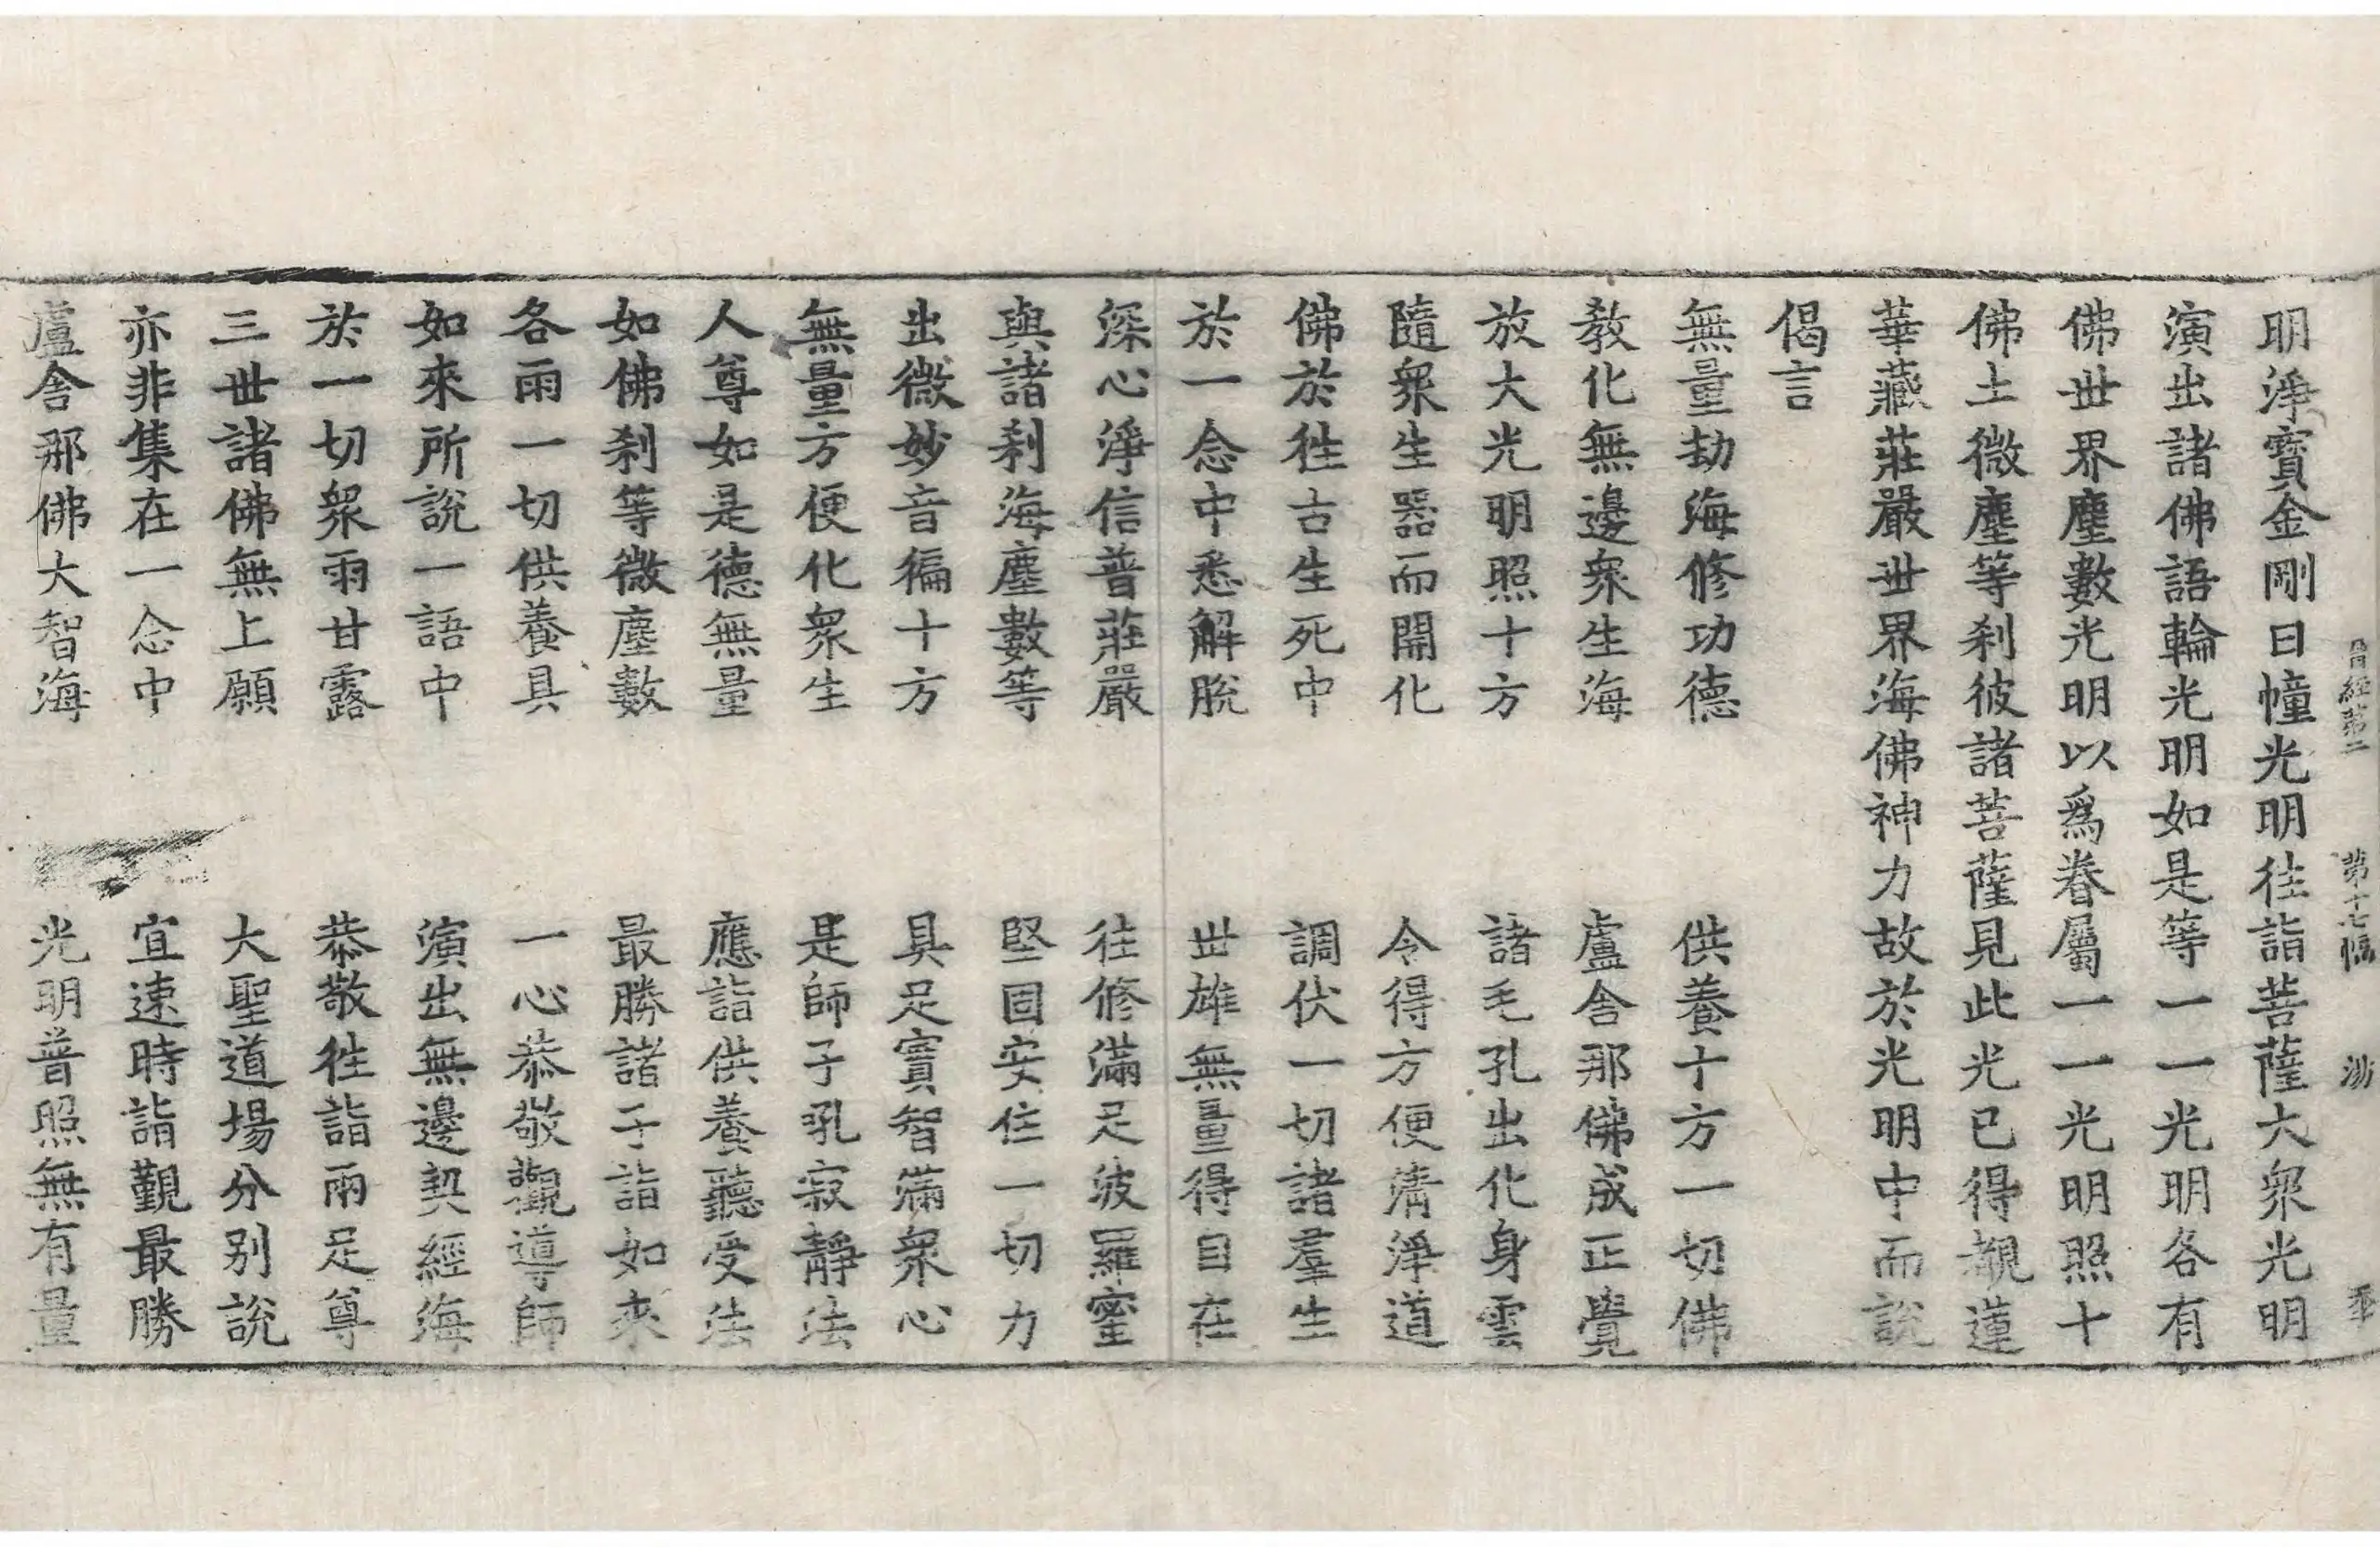 晉經第二 第十七幅
明淨寶金剛日幢光明往詣菩薩大衆光明
演出諸佛語輪光明如是等一一光明各有
佛世界塵數光明以爲眷屬一一光明照十
佛土微塵等刹彼諸菩薩見此光已得覩蓮
華藏莊嚴世界海佛神力故於光明中而説
偈言
無量劫海修功德 供養十方一切佛
教化無邊衆生海 盧舍那佛成正覺
放大光明照十方 諸毛孔出化身雲
隨衆生器而開化 令得方便清淨道
佛於徃古生死中 調伏一切諸羣生
於一念中悉解脫 世雄無量得自在
深心淨信普莊嚴 往修滿足波羅蜜
與諸刹海塵數等 堅固安住一切力
出微妙音徧十方 具足寶智滿衆心
無量方便化衆生 是師子吼寂靜法
人尊如是德無量 應詣供養聽受法
如佛刹等微塵數 最勝諸子詣如來
各雨一切供養具 一心恭敬觀導師
如來所說一語中 演出無邊契經海
於一切衆雨甘露 恭敬徃詣兩足尊
三世諸佛無上願 大聖道場分别説
亦非集在一念中 宜速時詣觀最勝
盧舍那佛大智海 光明普照無有量